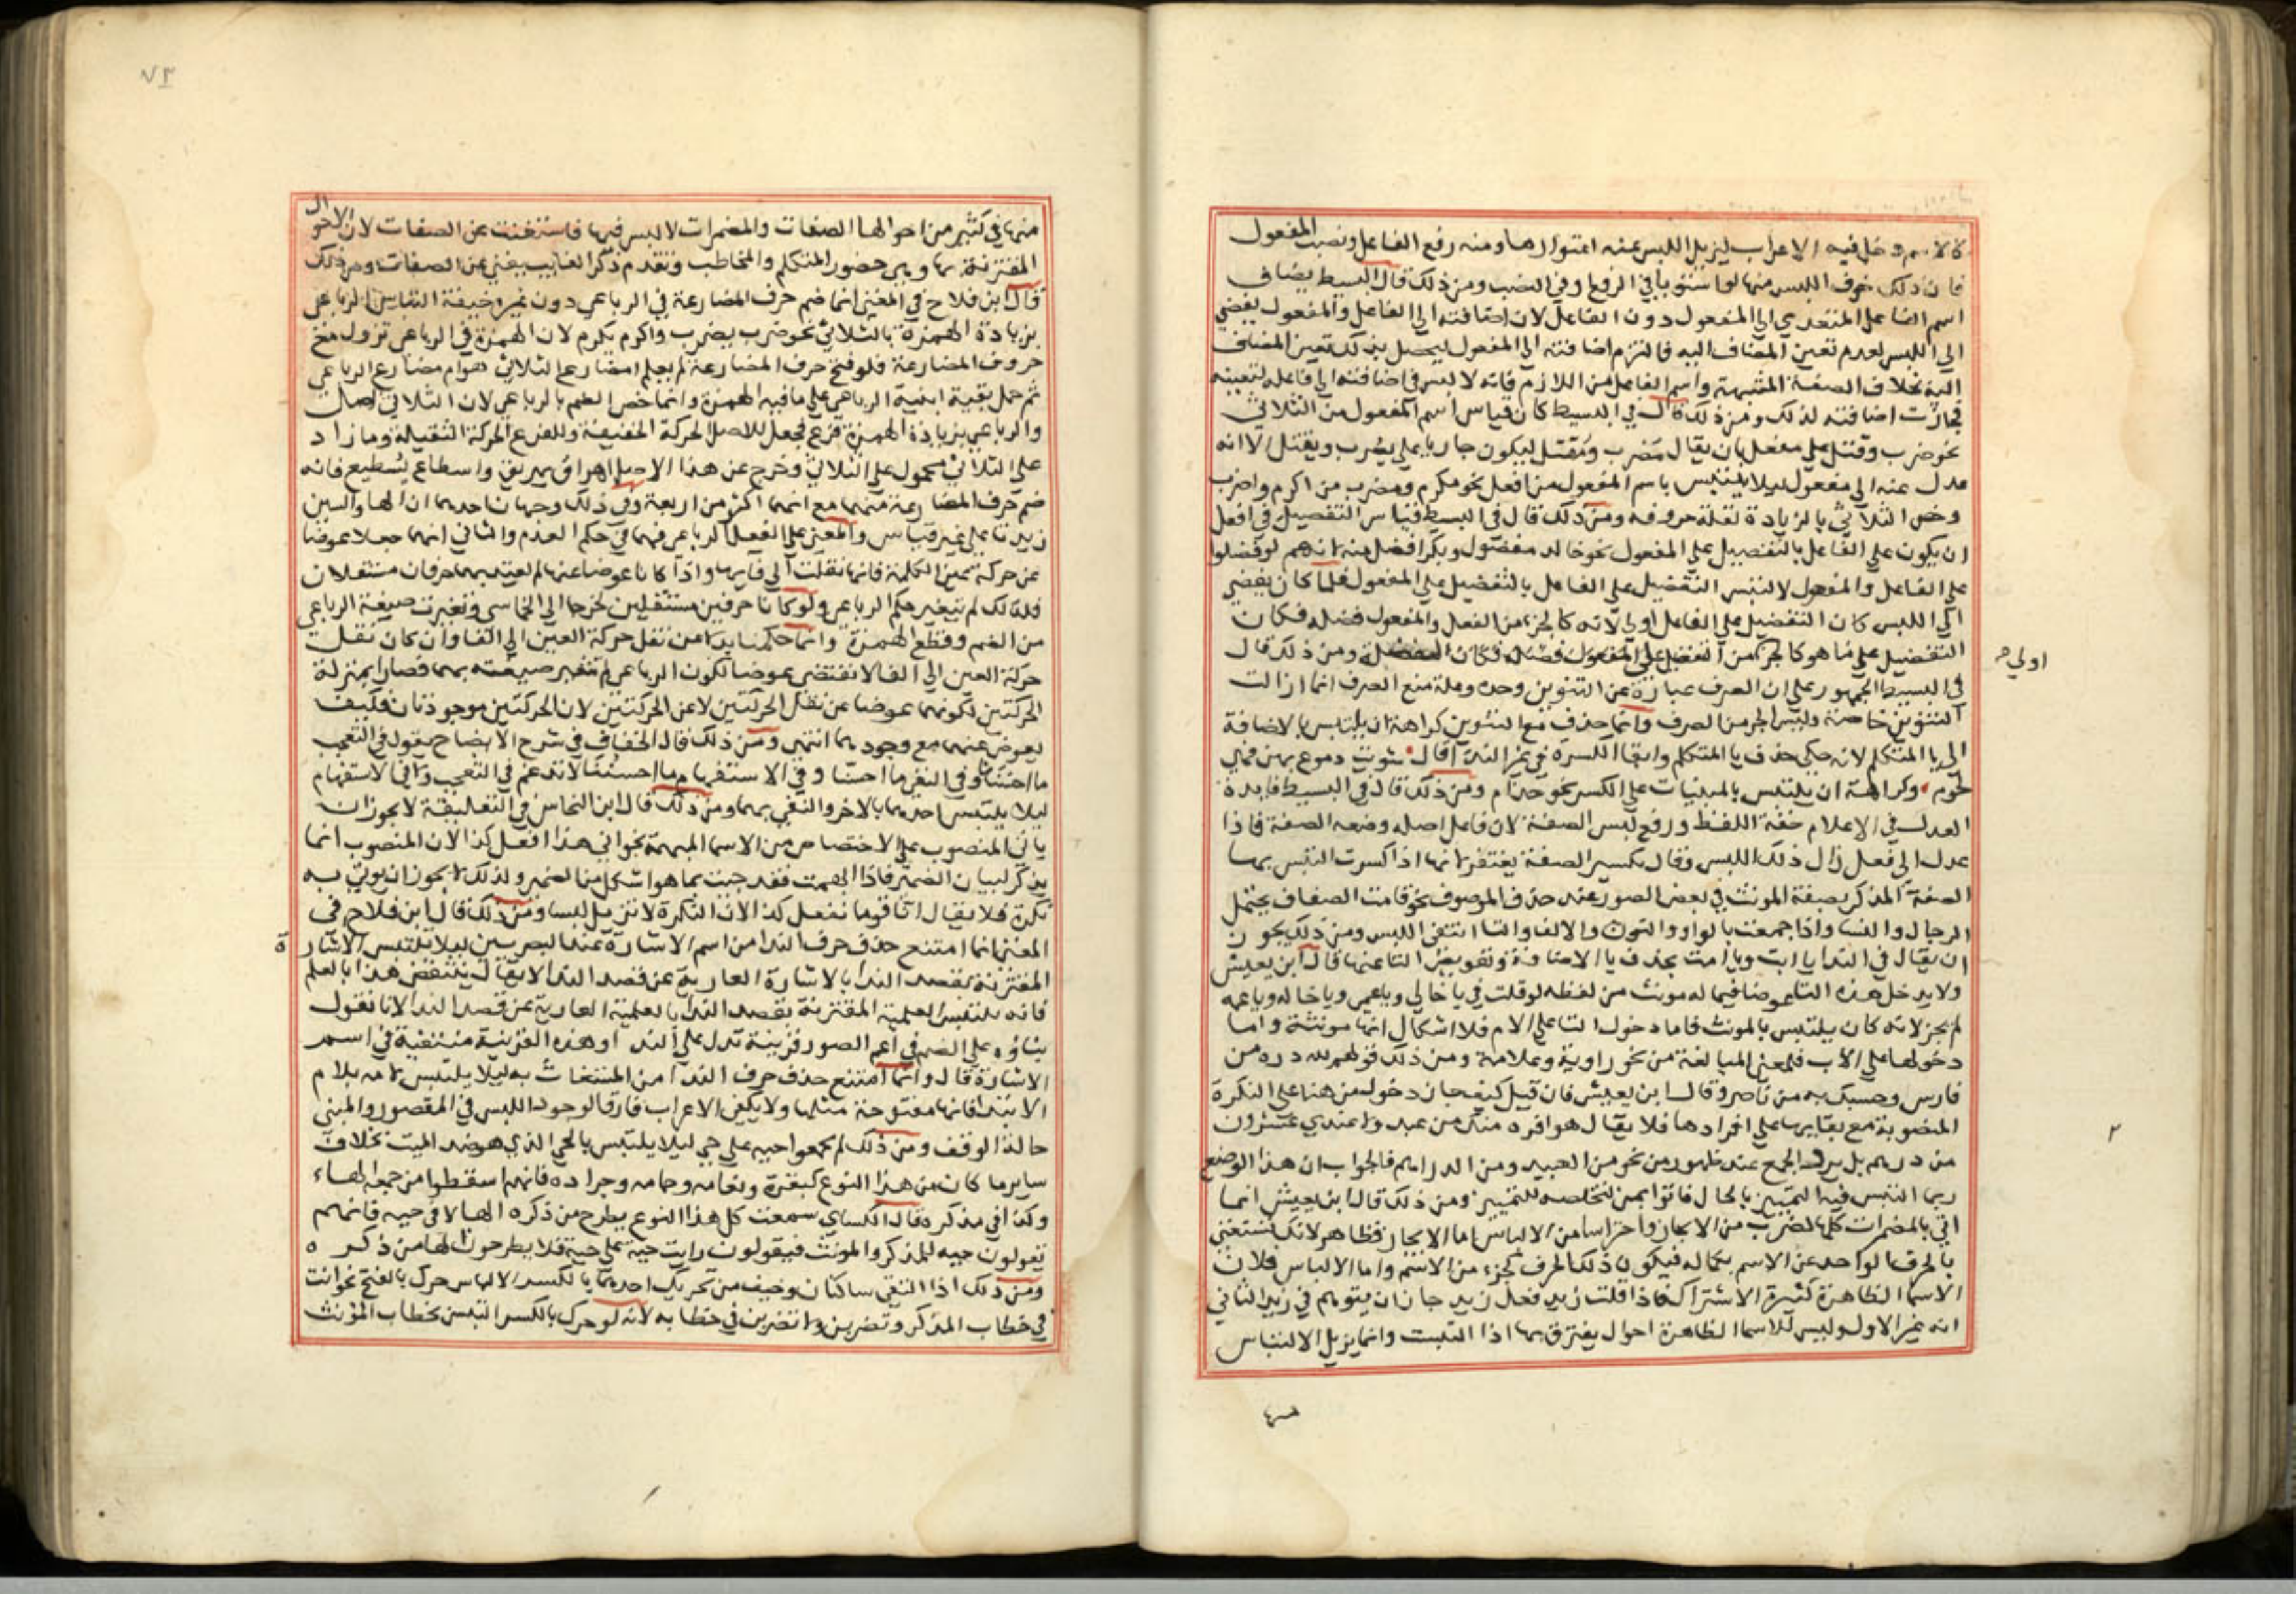 كالاسم دخل فيه الاعراب ليزيل اللبس عنه اعتوارها ومنه رفع الفاعل ونصب المفعول
فان ذلك خوف اللبس منها لو استويا في الرفع او في النصب ومن ذلك قال في البسيط يضاف
اسم الفاعل المتعدي الى المفعول دون الفاعل لان اضافته الى الفاعل والمفعول يفضي
الى اللبس لعدم تعين المضاف اليه فالتزم اضافته الى المفعول ليحصل بذلك تعين المضاف
اليه بخلاف الصفة المشبهة واسم الفاعل من اللازم فانه لا لبس في اضافته الى فاعله لتعينه
فجازت اضافته لذلك ومن ذلك قال في البسيط كان قياس اسم المفعول من الثلاثي
نحو ضرب وقتل على مفعل بان يقال مضرب ومقتل ليكون جاريا على يضرب ويقتل الا انه
عدل عنه الى مفعول ليلا يلتبس باسم المفعول من افعل نحو مكرم ومضرب من اكرم واضرب
وخص الثلاثي بالزيادة لقلة حروفه ومن ذلك قال في البسيط قياس التفضيل في افعل
ان يكون على الفاعل بالتفضيل على المفعول نحو خالد مفضول وبكر افضل منه لانهم لو فضلوا
على الفاعل والمفعول لالتبس التفضيل على الفاعل بالتفضيل على المفعول فلما كان يفضي
الى اللبس كان التفضيل على الفاعل اولى لانه كالجزء من الفعل والمفعول فضله فكان
التفضيل على ما هو كالجزء من الفعل على المفعول فضله فكان الفضلة ومن ذلك قال
اولى صح
في البسيط الجمهور على ان الصرف عبارة عن التنوين وحده وعلة منع الصرف انما ازالت
التنوين خاصة وليس الجر من الصرف وانما حذف مع التنوين كراهة ان يلتبس بالاضافة
الى يا المتكلم لانه حكى حذف يا المتكلم وابقا الكسرة في غير الندا قال شوت دموع بهن فهي
لحوم وكراهة ان يلتبس بالمبنيات على الكسر نحو حذام ومن ذلك قال في البسيط فايدة
العدل في الاعلام خفة اللفظ ورفع لبس الصفة لان فاعل اصله وضعه الصفة فاذا
عدل الى فعل زال ذلك اللبس وقال تكسير الصفة يغتفر لانها اذا كسرت التبس بها
الصفة المذكر بصفة المونث في بعض الصور عند حذف الموصوف نحو قامت الصعاف يحتمل
الرجال والنسا واذا جمعت بالواو والنون والالف والتا انتفى اللبس ومن ذلك يجوز
ان يقال في الندا يا ابت ويا امت بحذف يا الاضافة وتعويض التا عنها قال ابن يعيش
ولا يدخل هذه التا عوضا فيما له مونث من لفظه لو قلت في يا خالي ويا عمي ويا خاله ويا عمه
لم يجز لانه كان يلتبس بالمونث فاما دخول التا على الام فلا اشكال انها مونثة واما
دخولها على الاب فلمعنى المبالغة من نحو راوية وعلامة ومن ذلك قولهم لله دره من
فارس وحسبك به من ناصر وقال ابن يعيش فان قيل كيف جاز دخول من هنا على النكرة
المنصوبة مع بقايها على افرادها فلا يقال هو افره منك من عبد ولا عندي عشرون
من درهم بل يرد الى الجمع عند ظهور من نحو من العبيد ومن الدراهم فالجواب ان هذا الموضع
ربما التبس فيه التمييز بالحال فاتوا بمن لتخلصه للتمييز ومن ذلك قال ابن يعيش انما
اتي بالمضمرات كلها لضرب من الايجاز واحتراسا من الالباس اما الايجاز فظاهر لانك تستغني
بالحرف الواحد عن الاسم بكماله فيكون ذلك الحرف كجزء من الاسم واما الالباس فلان
الاسما الظاهرة كثيرة الاشتراك فاذا قلت زيد فعل زيد جاز ان يتوهم في زيد الثاني
انه غير الاول وليس للاسما الظاهرة احوال يفترق بها اذا التبست وانما يزيل الالتباس
منها
منها في كثير من احوالها الصفات والمضمرات لا لبس فيها فاستغنت عن الصفات لان الاحوال
المقترنة بها وهي حضور المتكلم والمخاطب وتقدم ذكر الغايب يغني عن الصفات ومن ذلك
قال ابن فلاح في المغني انما ضم حرف المضارعة في الرباعي دون غيره خيفة التباس الرباعي
بزيادة الهمزة بالثلاثي نحو ضرب يضرب واكرم يكرم لان الهمزة في الرباعي تزول مع
حروف المضارعة فلو فتح حرف المضارعة لم يعلم امضارع الثلاثي هو ام مضارع الرباعي
ثم حمل بقية ابنية الرباعي على ما فيه الهمزة وانما خص الضم بالرباعي لان الثلاثي اصل
والرباعي بزيادة الهمزة فرع فجعل للاصل الحركة الخفيفة وللفرع الحركة الثقيلة وما زاد
على الثلاثي محمول على الثلاثي وخرج عن هذا الاصل اهراق يهريق واسطاع يسطيع فانه
ضم حرف المضارعة منهما مع انهما اكثر من اربعة وفي ذلك وجهان احدهما ان الها والسين
زيدتا على غير قياس والمعنى على الفعل الرباعي فهما في حكم العدم والثاني انهما جعلا عوضا
عن حركة عين الكلمة فانها نقلت الى فايها واذا كانا عوضا عنها لم يعتد بهما حرفان مستقلان
فلذلك لم يتغير حكم الرباعي ولو كانا حرفين مستقلين لخرجا الى الخماسي وتغيرت صيغة الرباعي
من الضم وقطع الهمزة وانما حكمنا بدلا من نقل حركة العين الى الفا وان كان نقل
حركة العين الى الفا لا تقتضي عوضا لكون الرباعي لم تتغير صيغته بهما فصارا بمنزلة
الحركتين لكونهما عوضا عن نقل الحركتين لا عن الحركتين لان الحركتين موجودتان فكيف
يعوض عنهما مع وجودهما انتهى ومن ذلك قال الخفاف في شرح الايضاح يقول في التعجب
ما احسننا وفي النفي ما احسنا وفي الاستفهام ما احسننا لا ندغم في التعجب ولا في الاستفهام
ليلا يلتبس احدهما بالاخر والنفي بهما ومن ذلك قال ابن النحاس في التعليقة لا يجوز ان
ياتي المنصوب على الاختصاص من الاسما المبهمة نحو اني هذا افعل كذا لان المنصوب انما
يذكر لبيان الضمير فاذا ابهمت فقد جيت بما هو اشكل من الضمير ولذلك لا يجوز ان يوتى به
نكرة فلا يقال انا قوما نفعل كذا لان النكرة لا تزيل لبسا ومن ذلك قال ابن فلاح في
المغني انما امتنع حذف حرف الندا من اسم الاشارة عند البصريين ليلا يلتبس الاشارة
المقترنة بقصد الندا بالاشارة العارية عن قصد الندا لا يقال ينتقض هذا بالعلم
فانه يلتبس العلمية المقترنة بقصد الندا بالعلمية العارية عن قصد الندا لانا نقول
بناؤه على الضم في اعم الصور قرينة تدل على الندا وهذه القرينة منتفية في اسم
الاشارة قال وانما امتنع حذف حرف الندا من المستغاث به ليلا يلتبس لامه بلام
الابتدا فانها مفتوحة مثلها ولا يكفي الاعراب فارقا لوجود اللبس في المقصور والمبني
حالة الوقف ومن ذلك لم يجمعوا حيه على حي ليلا يلتبس بالحي الذي هو ضد الميت بخلاف
ساير ما كان من هذا النوع كبقرة ونعامه وحمامه وجراده فانهم اسقطوا من جمعه الهاء
وكذا في مذكره قال الكساي سمعت كل هذا النوع يطرح من ذكره الها الا في حيه فانهم
يقولون حيه للمذكر والمونث فيقولون رايت حية على حية فلا يطرحون الها من ذكره
ومن ذلك اذا التقى ساكنان وخيف من تحريك احدهما بالكسر الالباس حرك بالفتح نحو انت
في خطاب المذكر وتضربن ولا تضربن في خطابه لانه لو حرك بالكسر التبس بخطاب المؤنث